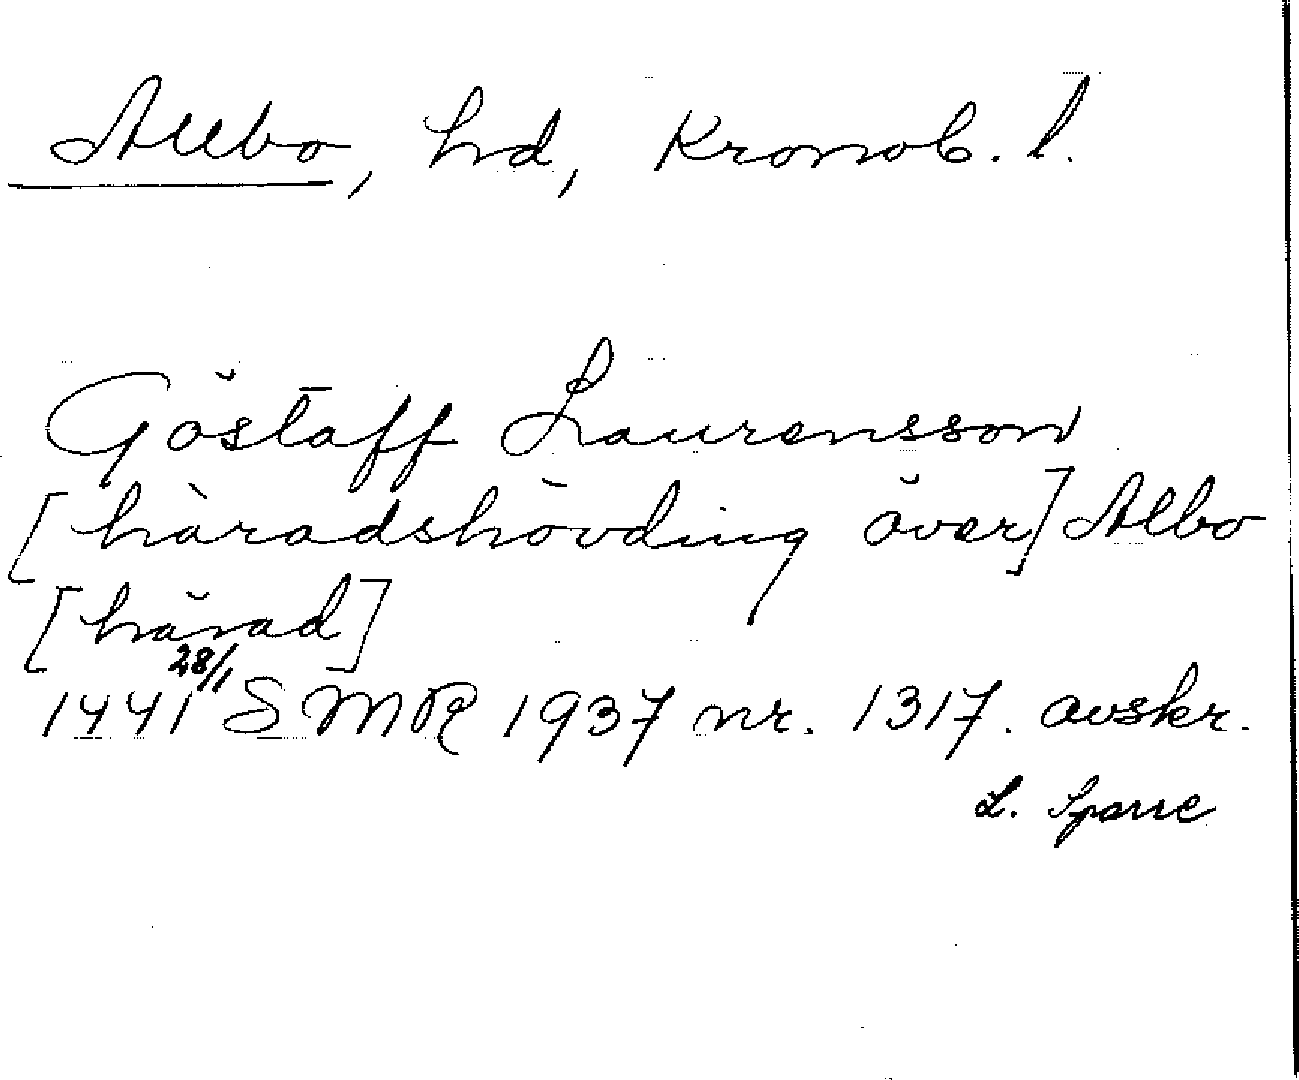 Allbo, hd, Kronob. l.
Göstaff Laurensson
[häradshövding över] Albo
[härad]
1441 28/1 SMR 1937 nr. 1317. avskr.
L. Sparre